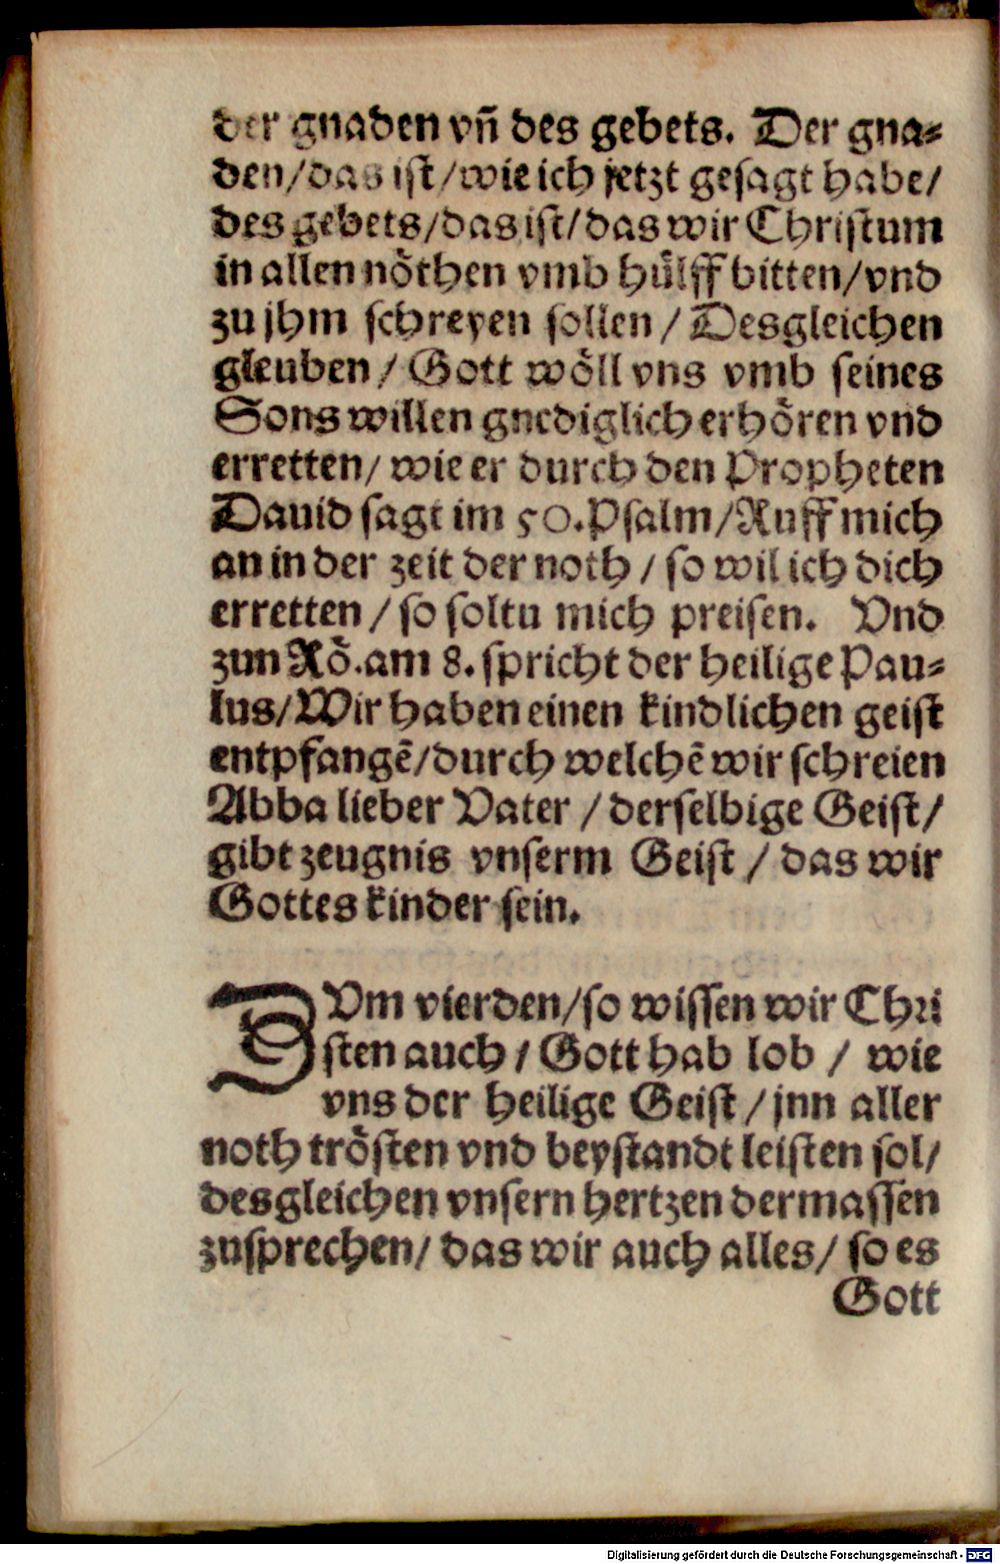 der gnaden vñ des gebets. Der gna⸗
den/das ist/wie ich jetzt gesagt habe/
des gebets/das ist/das wir Christum
in allen nöthen vmb hülff bitten/vnd
zu jhm schreyen sollen / Desgleichen
gleuben / Gott wöll vns vmb seines
Sons willen gnediglich erhören vnd
erretten/ wie er durch den Propheten
Dauid sagt im 50.Psalm/Ruff mich
an in der zeit der noth / so wil ich dich
erretten / so soltu mich preisen. Vnd
zun Rö.am 8. spricht der heilige Pau⸗
lus/Wir haben einen kindlichen geist
entpfangē/durch welchē wir schreien
Abba lieber Vater / derselbige Geist/
gibt zeugnis vnserm Geist / das wir
Gottes kinder sein.
ZVm vierden/so wissen wir Chri
sten auch / Gott hab lob / wie
vns der heilige Geist / jnn aller
noth trösten vnd beystandt leisten sol/
desgleichen vnsern hertzen dermassen
zusprechen/ das wir auch alles/ so es
Gott
Digitalisierung gefördert durch die Deutsche Forschungsgemeinschaft - DFG